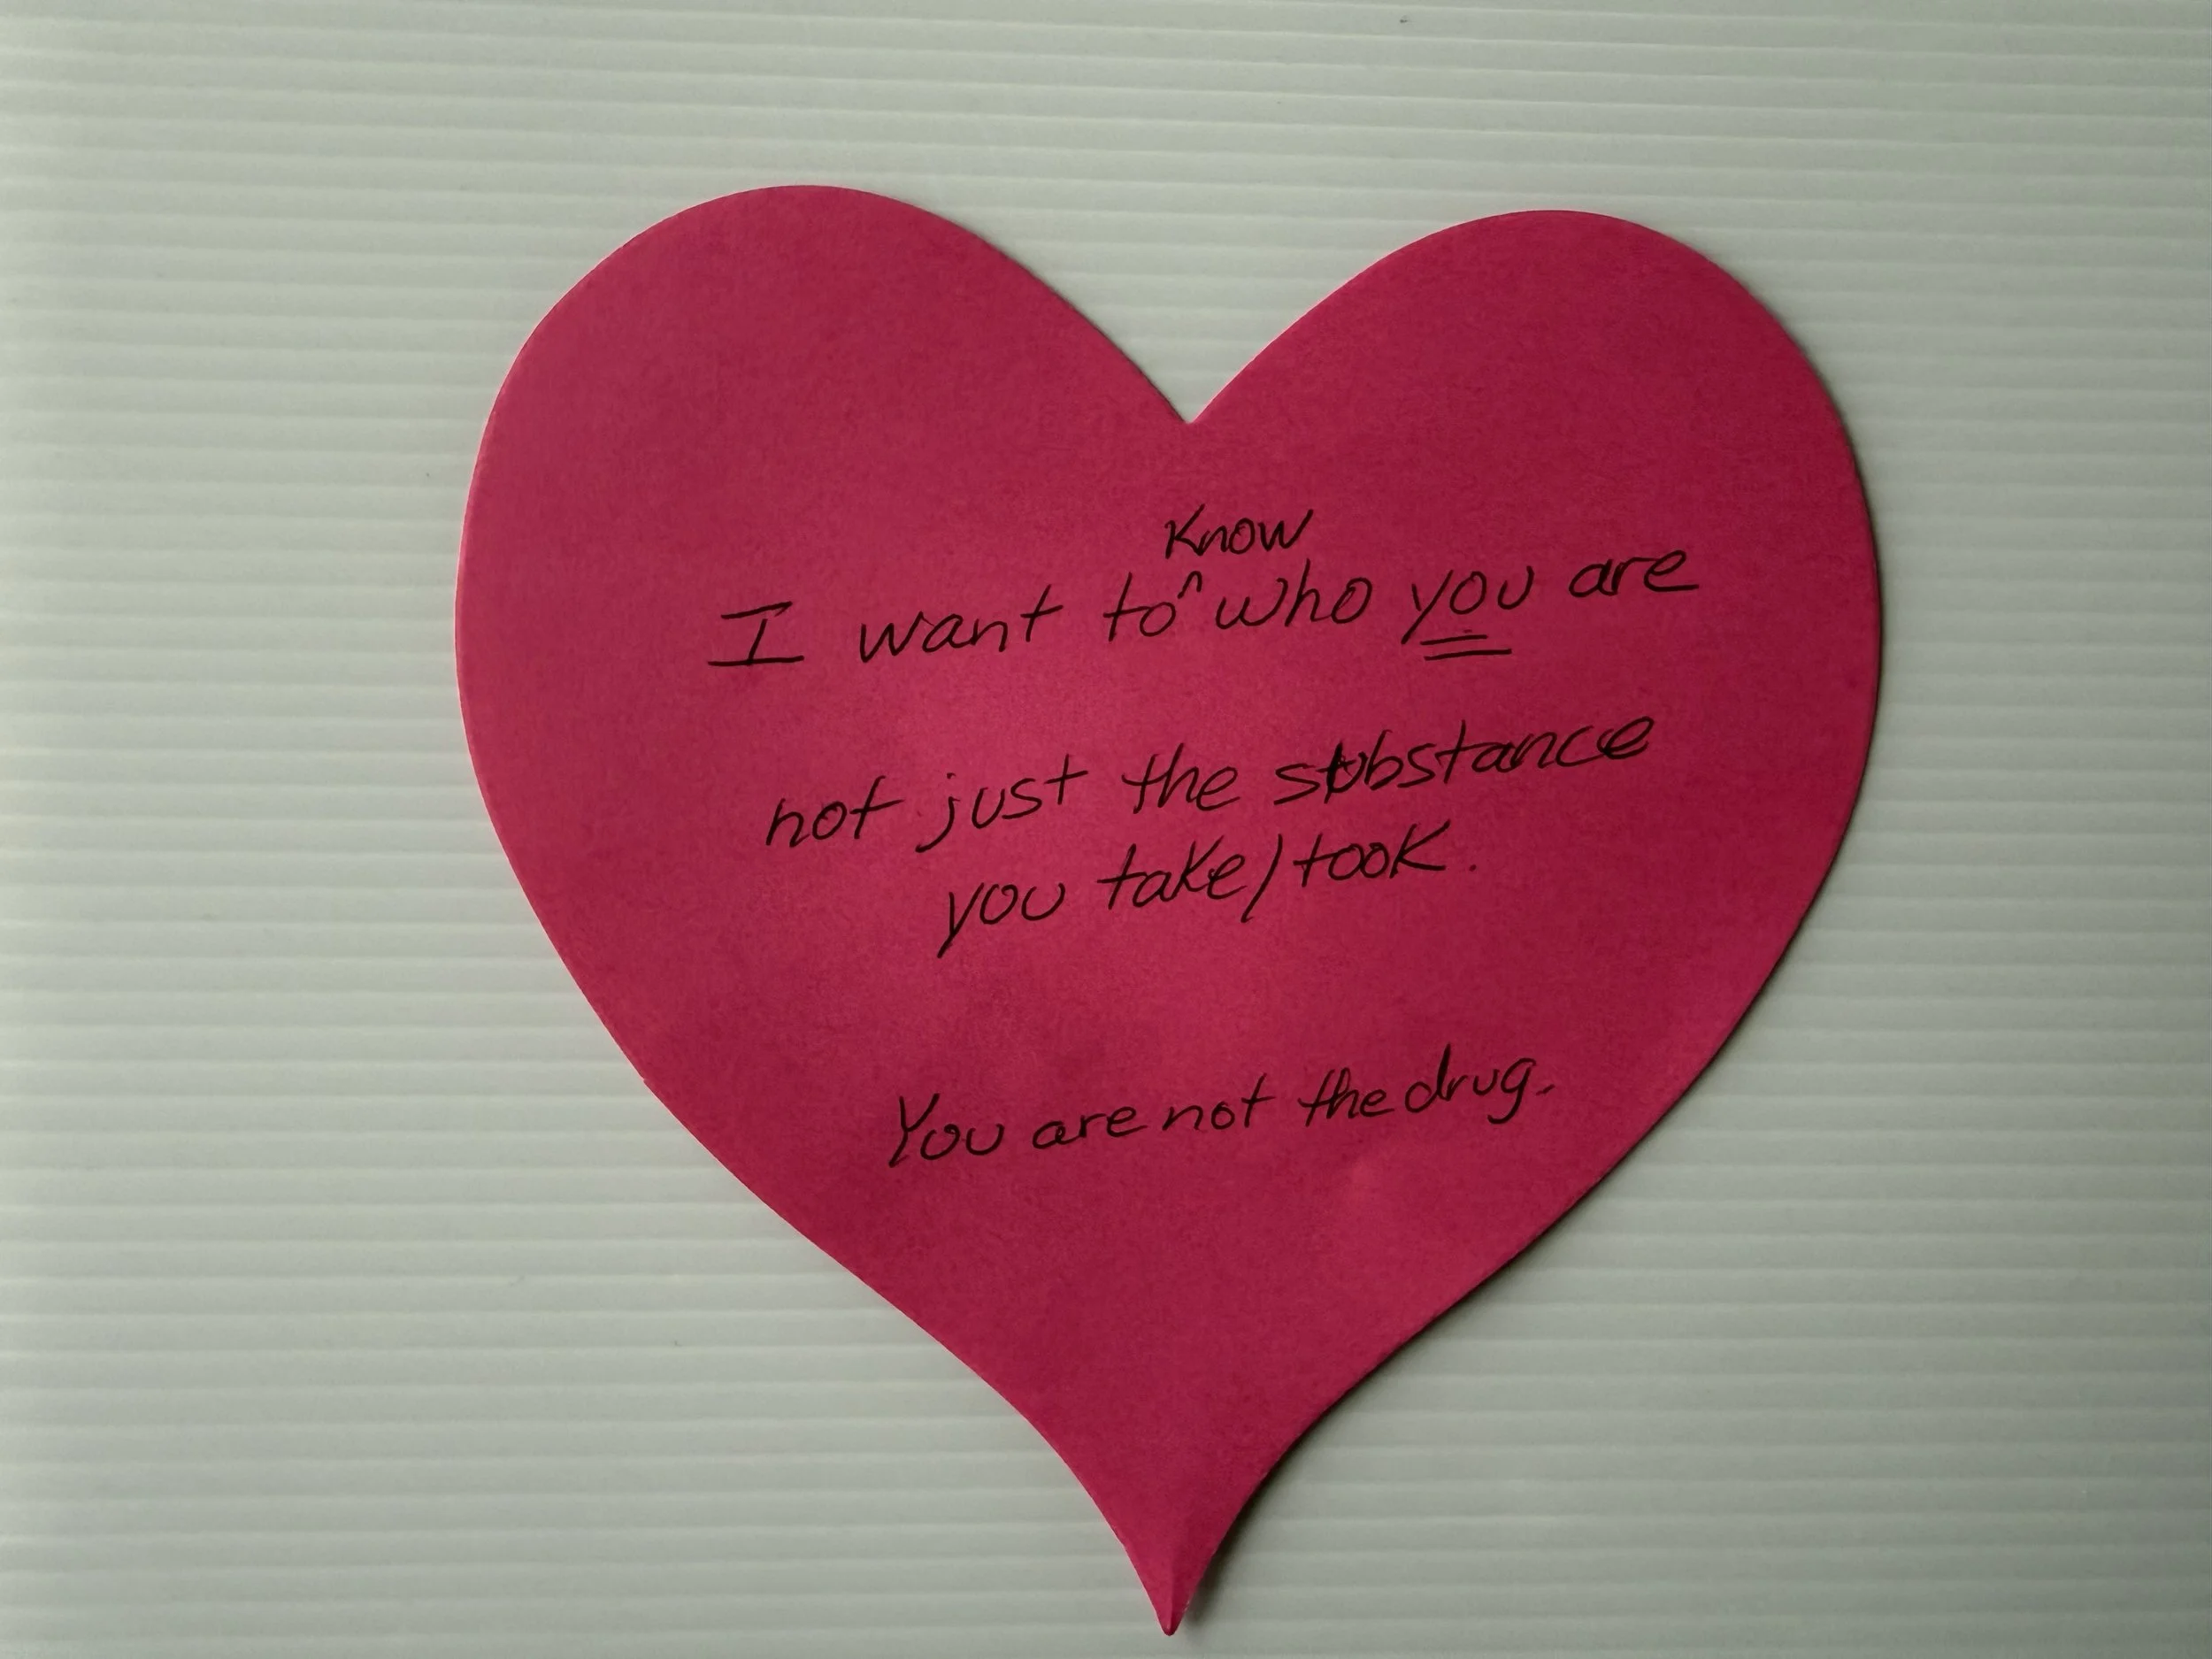 I want to ^Know who you are
not just the substance
you take/took.
You are not the drug.